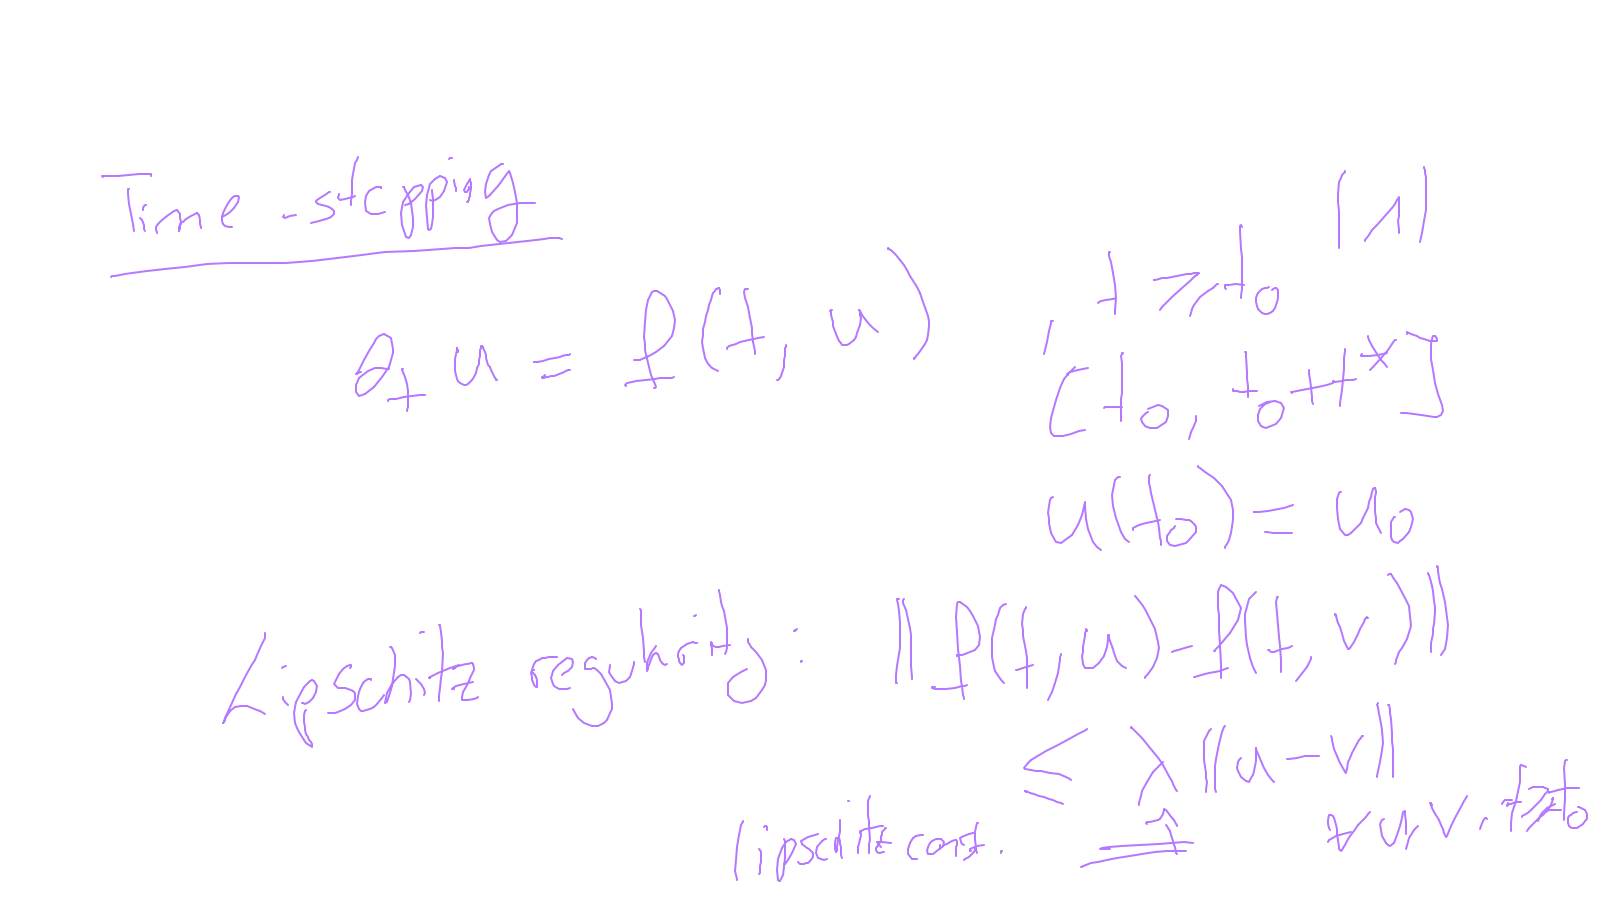 Time-stepping
∂_t u = f(t, u) , t ≥ t_0 |1|
[t_0, t_0+t*]
u(t_0) = u_0
Lipschitz regularity: ‖f(t,u)-f(t,v)‖
≤ λ‖u-v‖
lipschitz const. ↑ ∀ u,v, t≥t_0